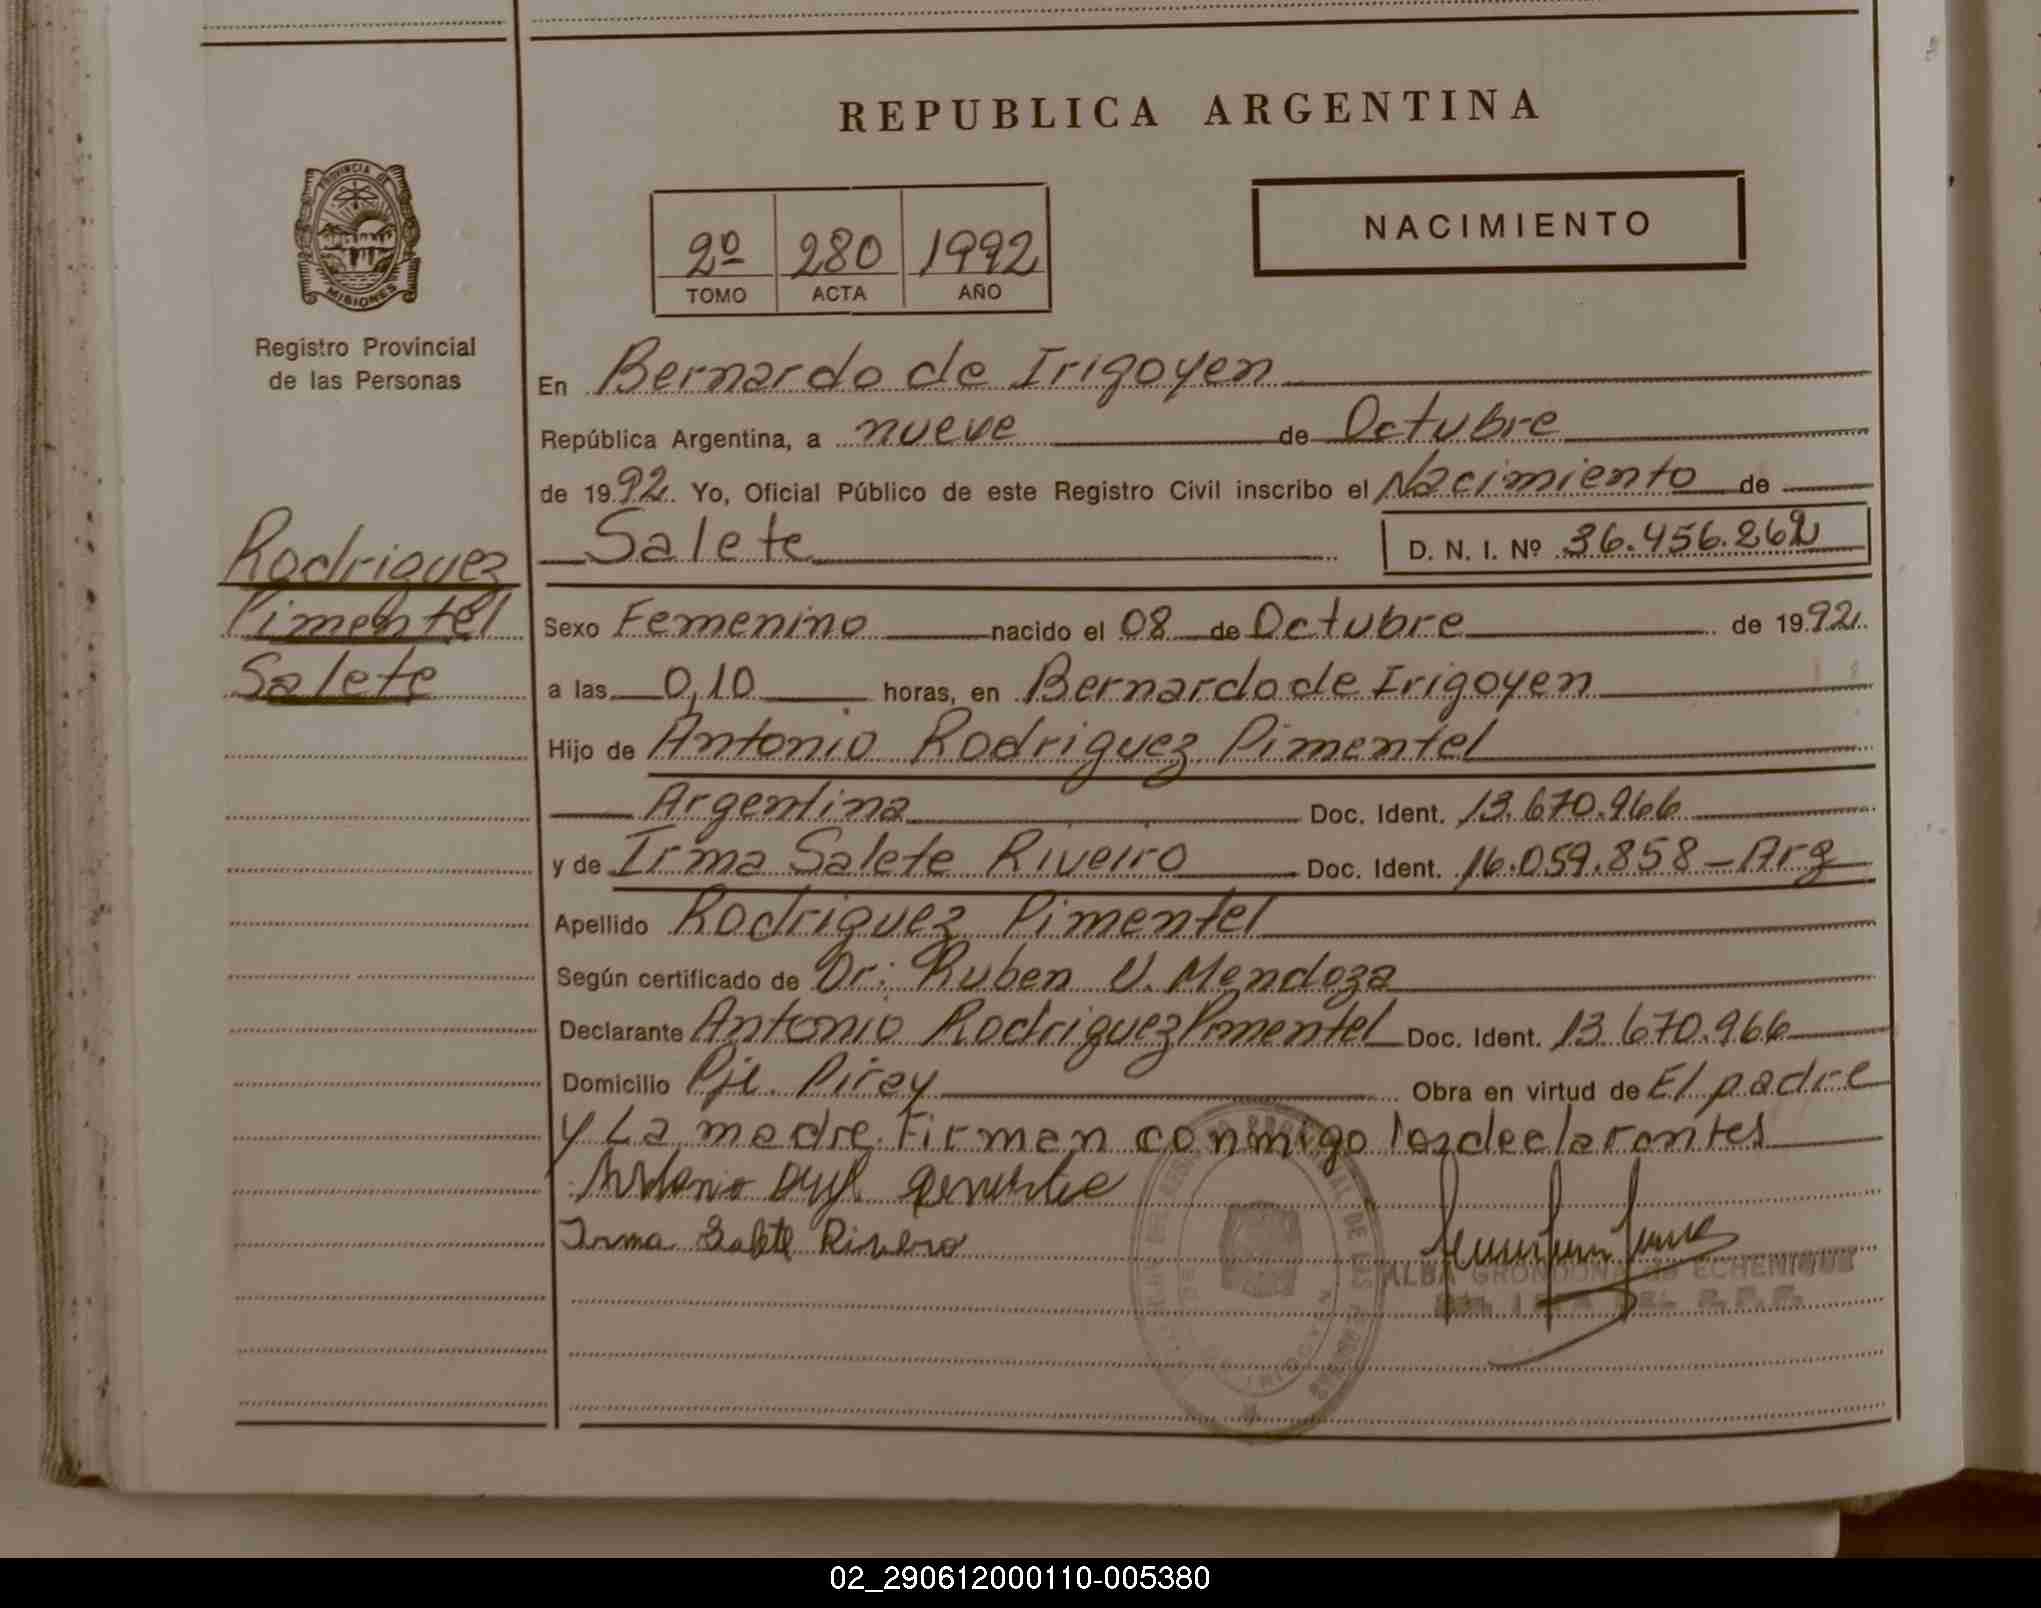 REPUBLICA ARGENTINA
NACIMIENTO
2º 280 1992
TOMO ACTA AÑO
PROVINCIA DE
MISIONES
Registro Provincial
de las Personas
Rodriguez
Pimentel
Salete
En Bernardo de Irigoyen
República Argentina, a nueve de Octubre
de 1992. Yo, Oficial Público de este Registro Civil inscribo el Nacimiento de
Salete D. N. I. Nº 36.456.262
Sexo Femenino nacido el 08 de Octubre de 1992
a las 0,10 horas, en Bernardo de Irigoyen
Hijo de Antonio Rodriguez Pimentel
Argentina Doc. Ident. 13.670.966
y de Irma Salete Riveiro Doc. Ident. 16.059.858 - Arg
Apellido Rodriguez Pimentel
Según certificado de Dr: Ruben V. Mendoza
Declarante Antonio Rodriguez Pimentel Doc. Ident. 13.670.966
Domicilio Pje. Piray Obra en virtud de El padre
y La madre. Firman conmigo los declarantes
Irma Salete Rivero
ALBA ECHENIQUE
02_290612000110-005380